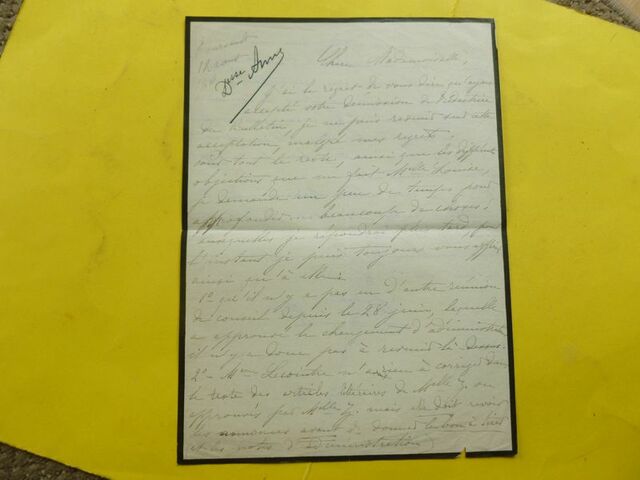 Dsse Anne
Chère Mademoiselle,
J'ai le regret de vous dire qu'ayant
accepté votre démission de Directrice
du Bulletin, je ne puis revenir sur cette
acceptation, malgré mes regrets.
Sur tout le reste, ainsi que les différentes
objections que me fait Melle
je demande un peu de temps pour
approfondir beaucoup de choses,
auxquelles je répondrai plus tard, pr
l'instant je puis toujours vous affirmer
ainsi qu'à
1° qu'il n'y a pas eu d'autre réunion
de conseil depuis le 28 juin, laquelle
a approuvé le changement d'administrat.
il n'y a donc pas à revenir là dessus.
2° Mme Lecointre n'a rien à corriger dans
le texte des articles littéraires de Melle Z. ou
approuvés par Melle Z. mais elle doit revoir
les annonces avant de donner le bon à tirer
et les notes d'administration